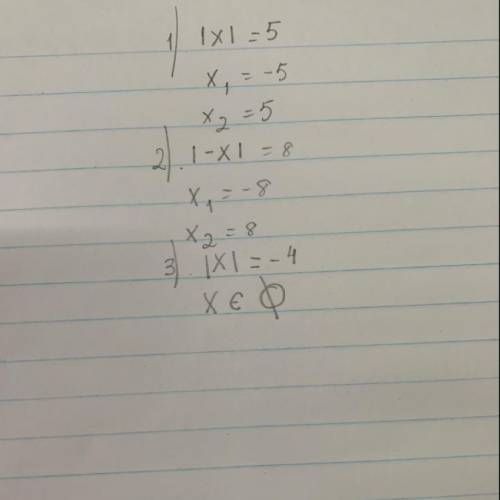 1) |x| = 5
x₁ = -5
x₂ = 5
2) |-x| = 8
x₁ = -8
x₂ = 8
3) |x| = -4
x ∈ ∅